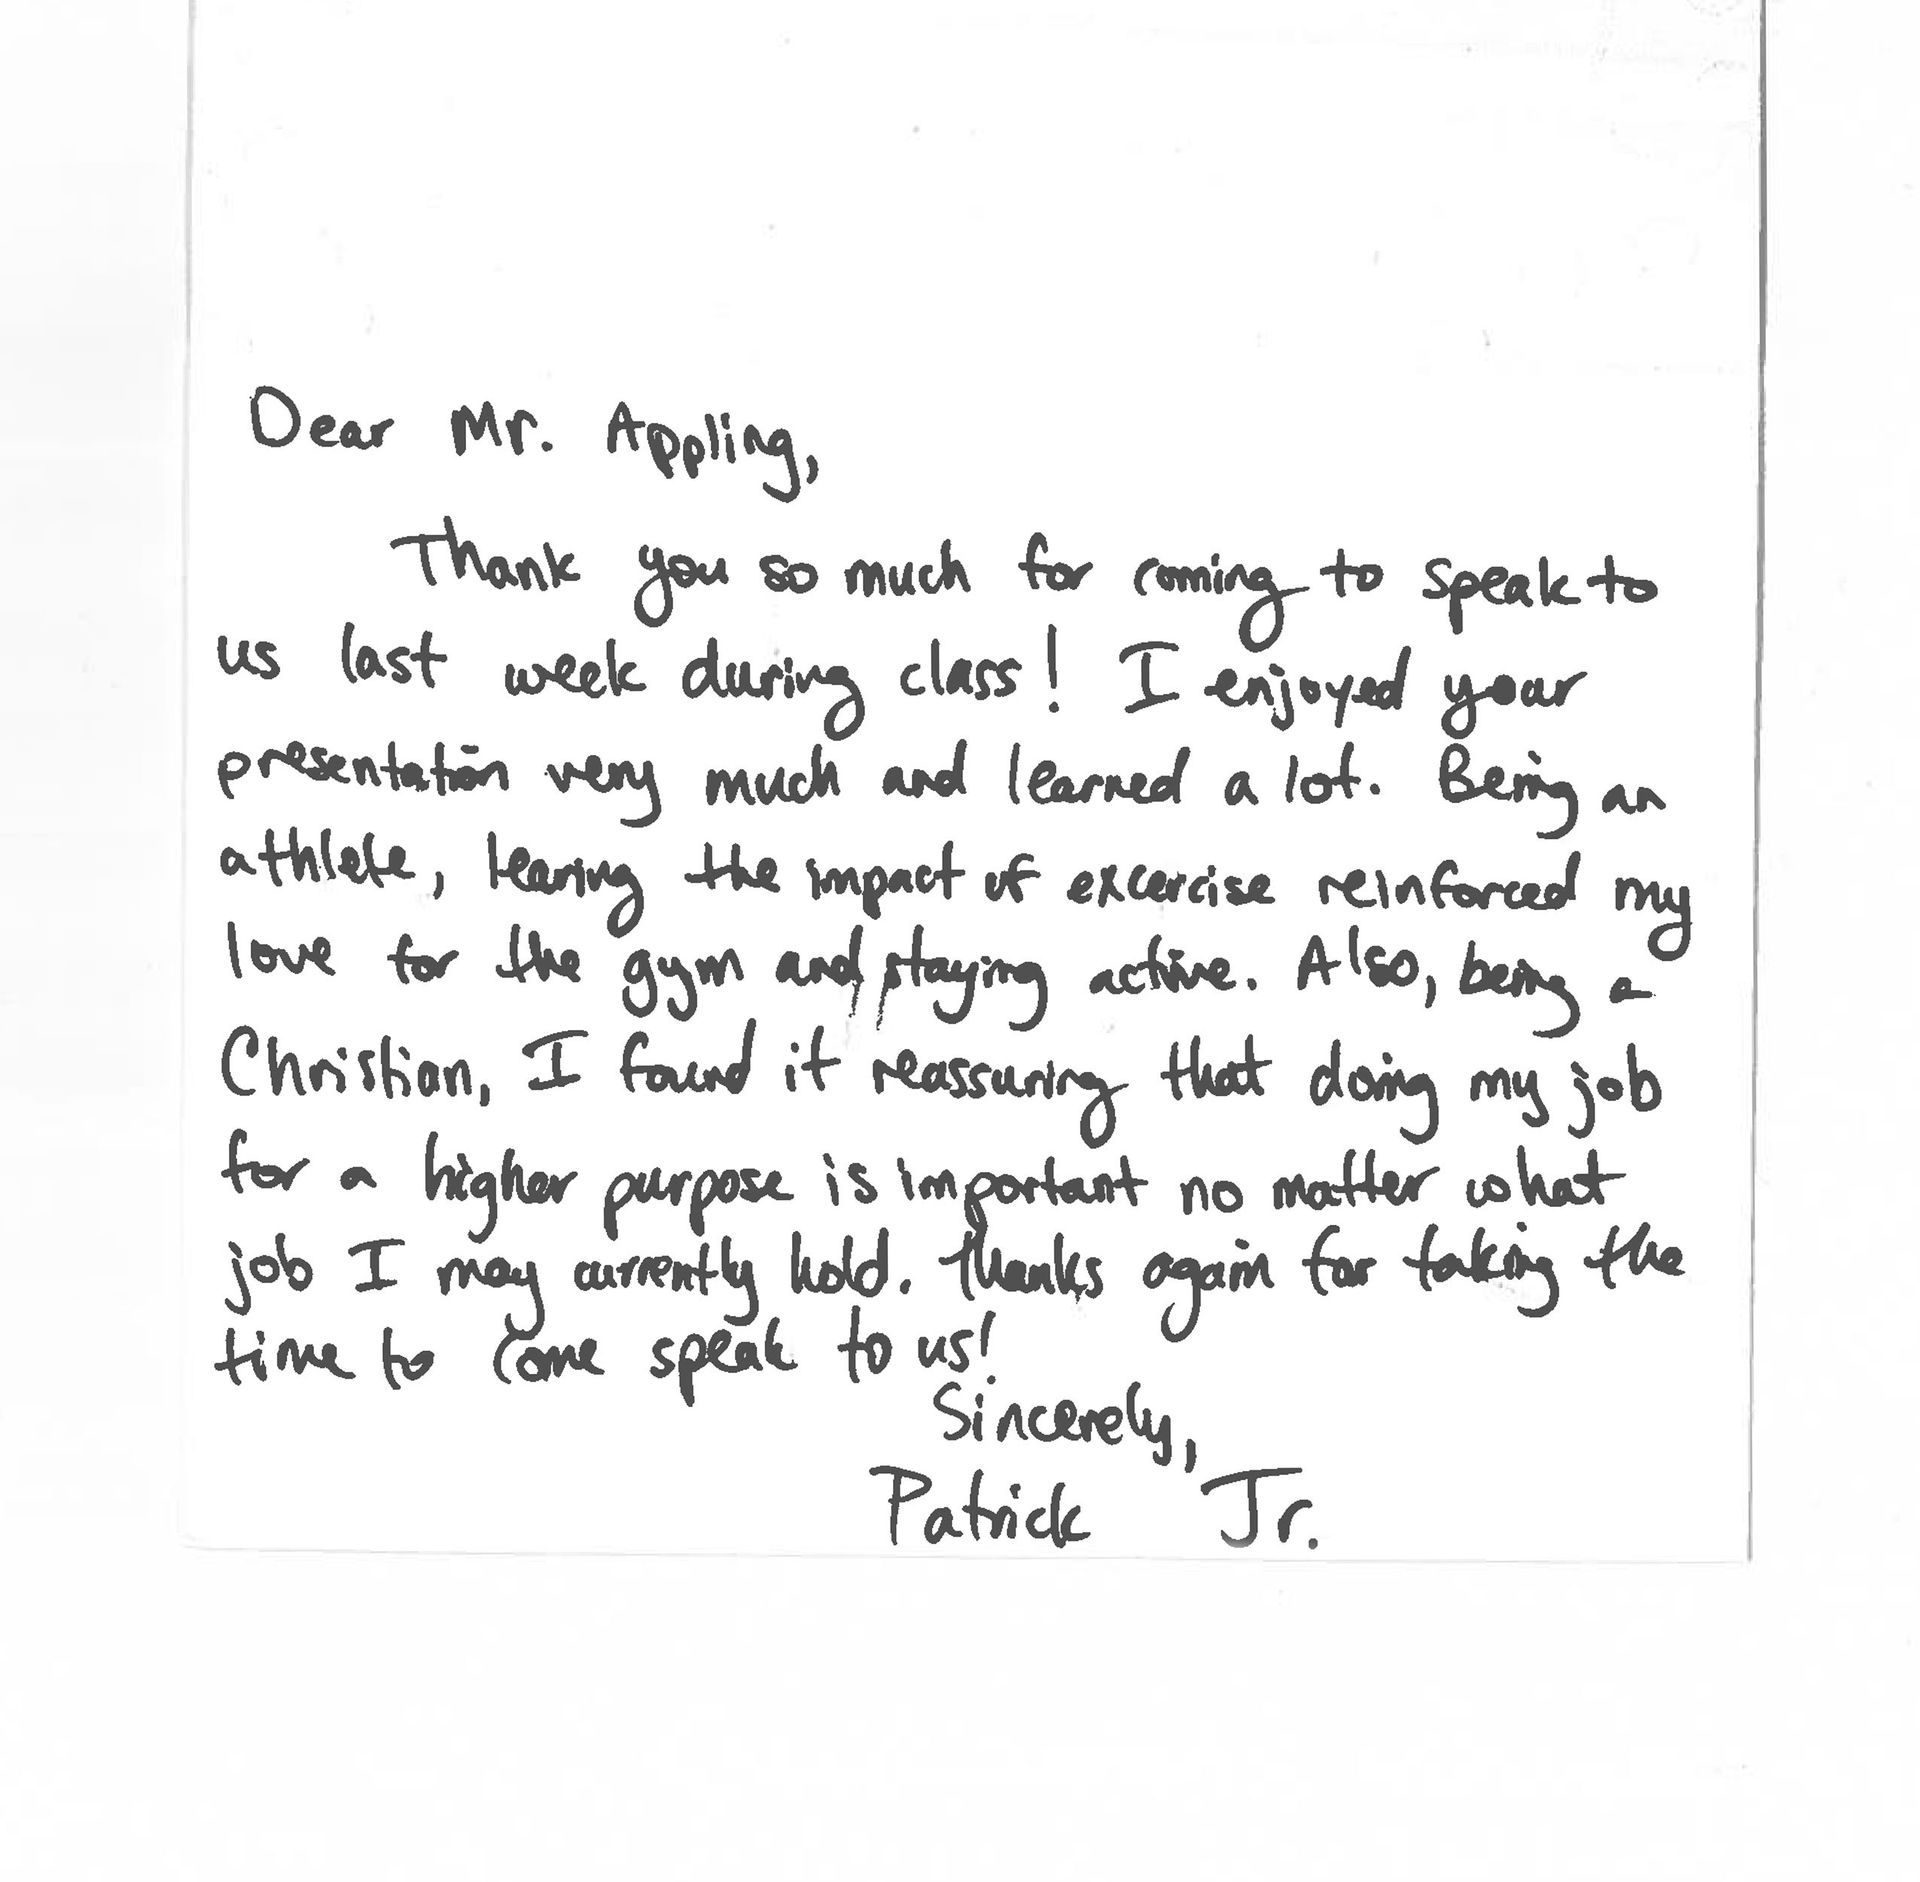 Dear Mr. Appling,
Thank you so much for coming to speak to
us last week during class! I enjoyed your
presentation very much and learned a lot. Being an
athlete, learing the impact of excercise reinforced my
love for the gym and staying active. Also, being a
Christian, I found it reassuring that doing my job
for a higher purpose is important no matter what
job I may currently hold. Thanks again for taking the
time to come speak to us!
Sincerely,
Patrick Jr.